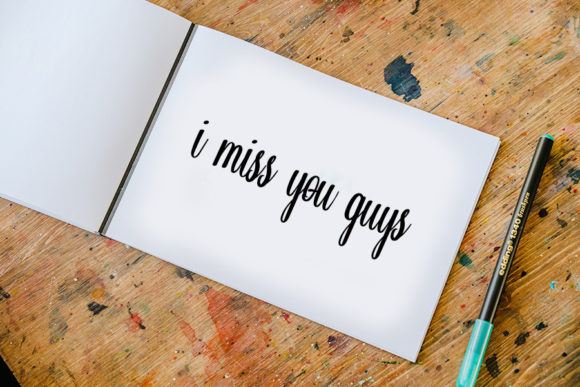 i miss you guys
edding 1340